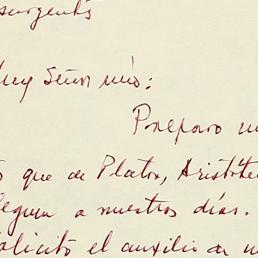 surgents
uy Señor mío:
Preparo u
que de Platon, Aristóte
legum a nuestros días.
olicito el auxilio de u